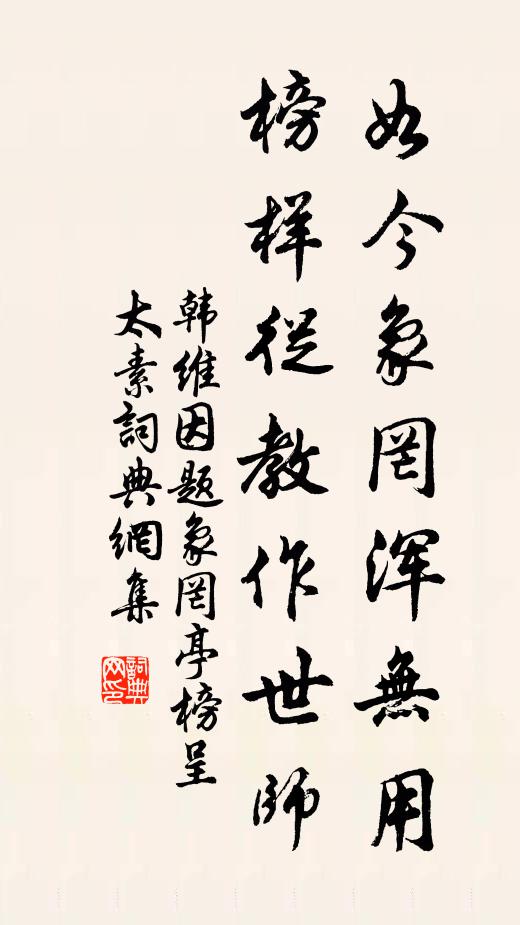 如今象罔浑無用
榜样從教作世師
韩維因题象罔亭榜呈
太素詞典網集
詞典网印